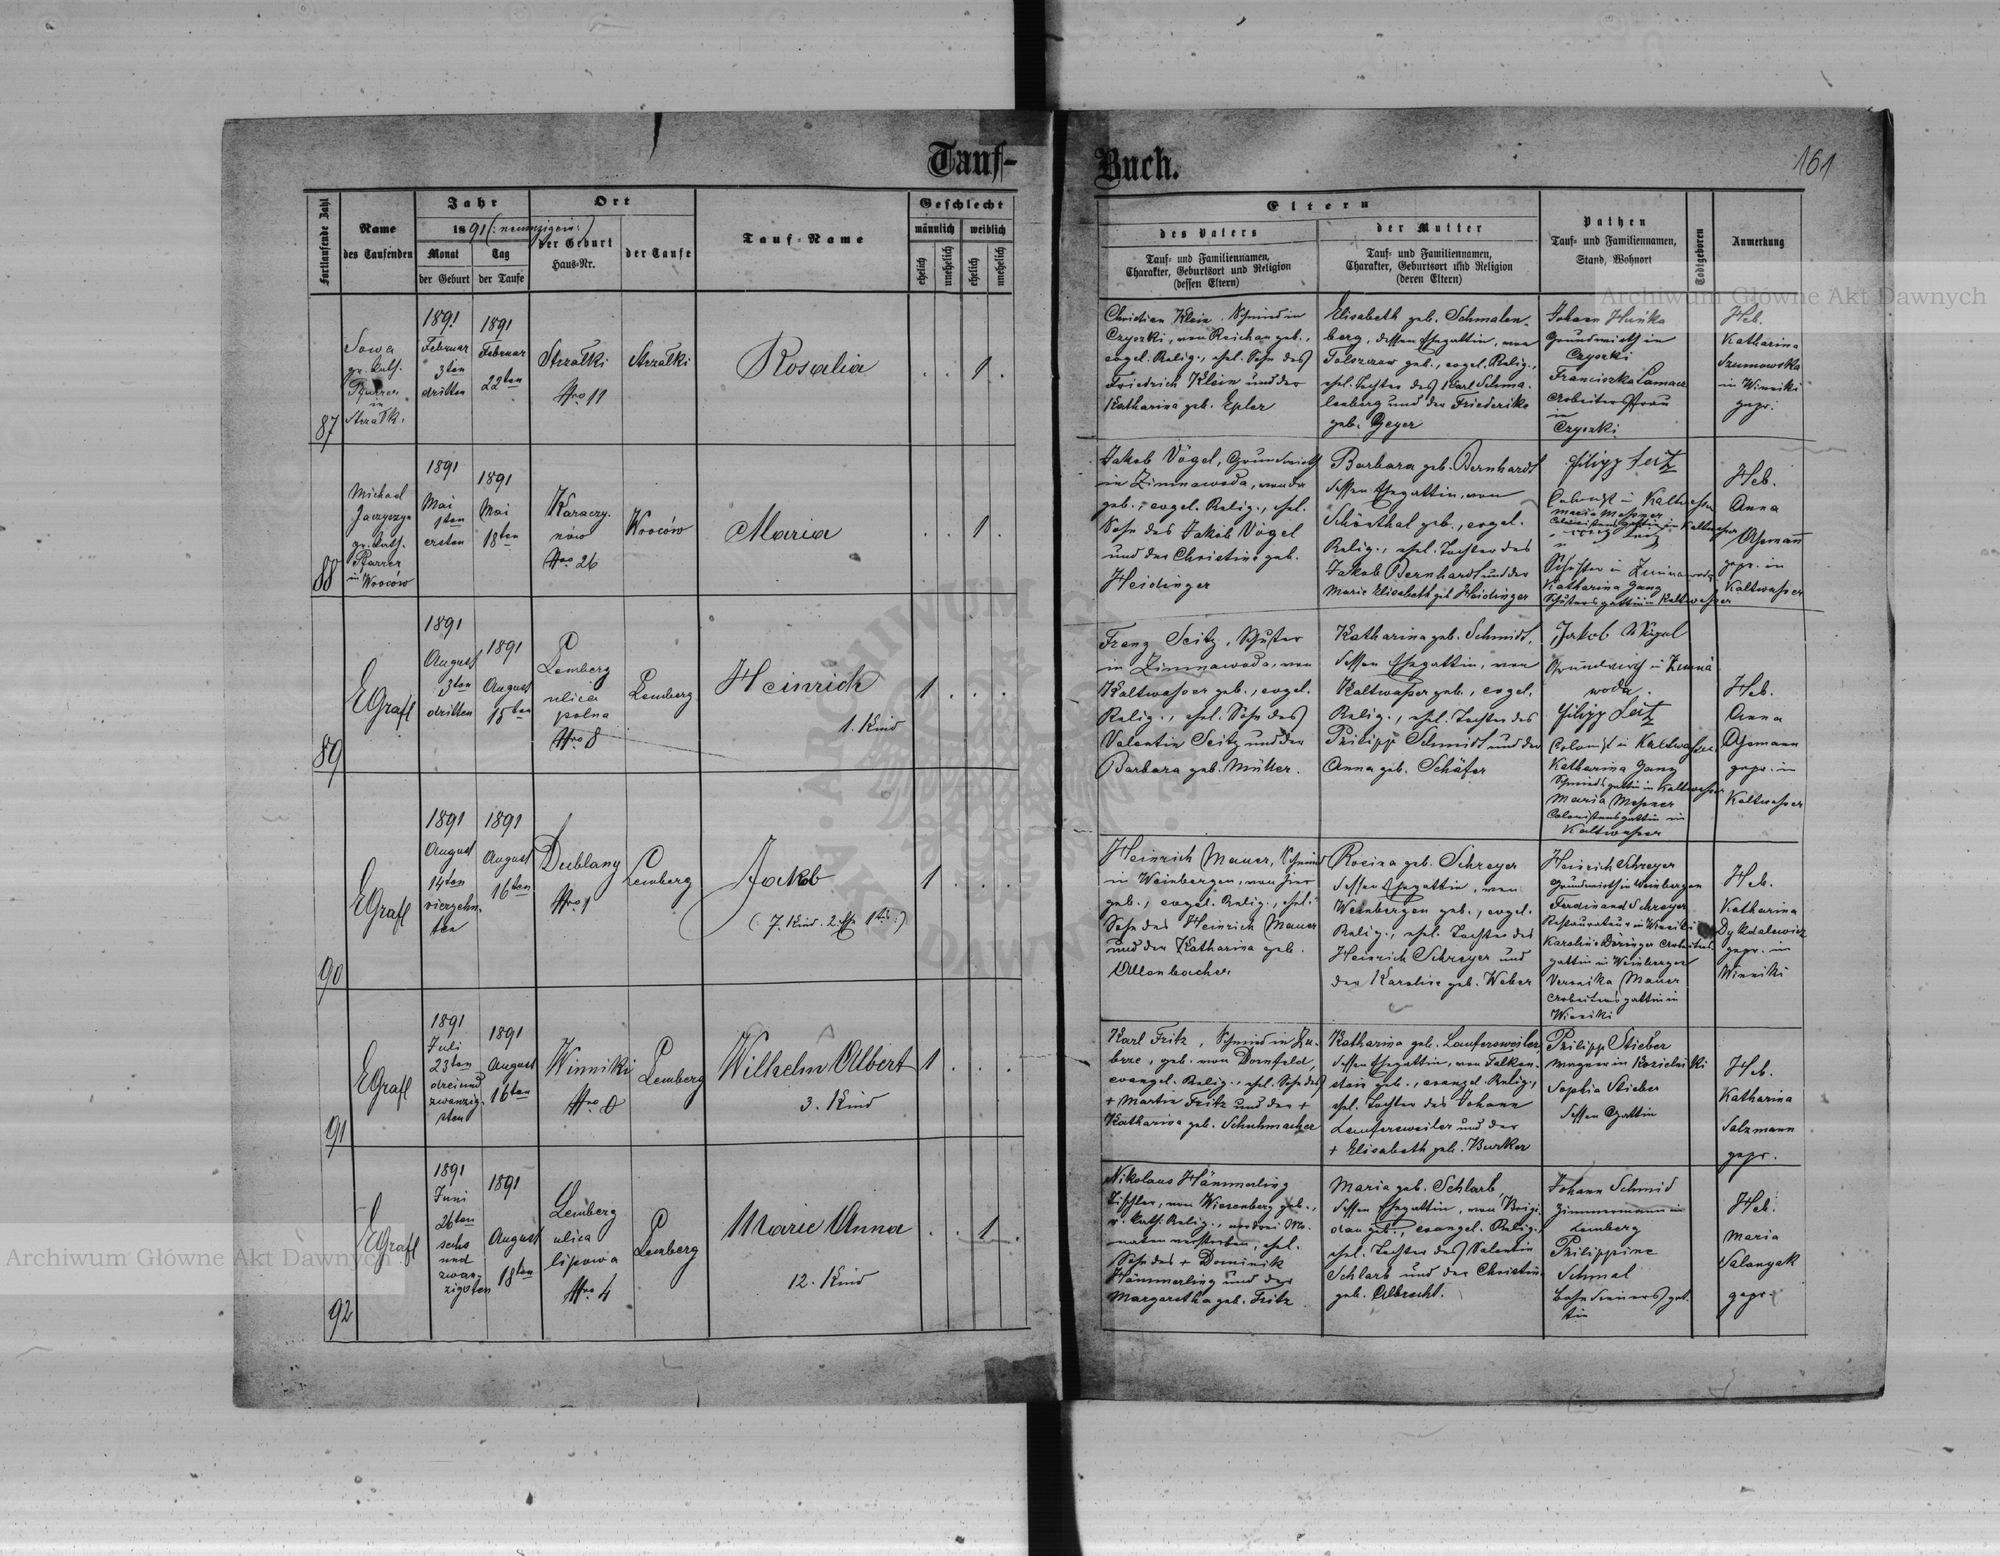 Tauf-
Buch.
161
Fortlaufende Zahl
Name
des Taufenden
Jahr
1891 (: neunzigein :)
Monat
der Geburt
Tag
der Taufe
Ort
der Geburt
Haus-Nr.
der Taufe
Tauf-Name
Geschlecht
männlich
weiblich
ehelich
unehelich
ehelich
unehelich
Eltern
des Vaters
Tauf- und Familiennamen,
Charakter, Geburtsort und Religion
(dessen Eltern)
der Mutter
Tauf- und Familiennamen,
Charakter, Geburtsort und Religion
(deren Eltern)
Pathen
Tauf- und Familiennamen,
Stand, Wohnort
Todtgeboren
Anmerkung
87
Sowa
gr. kath.
Pfarrer
in
Strzałk.
1891
Februar
3ten
dritten
1891
Februar
22ten
Strzałki
Nro 11
Strzałki
Rosalia
1
Christian Klein, Schmied in
Czyszki, von Reichau geb.,
evgel. Relig., ehel. Sohn des
Friedrich Klein und der
Katharina geb. Epler
Elisabeth geb. Schmalen-
berg, dessen Ehegattin, von
geb., evgel. Relig.,
ehel. Tochter des Karl Schma-
lenberg und der Friederike
geb. Geyer
Johann Huńka
Grundwirth in
Czyszki
Franciszka Lamacz
Arbeitersfrau
in
Czyszki
Heb.
Katharina
Szumowska
in Winniki
gepr.
88
Michael
gr. kath.
Pfarrer
in Wroców
1891
Mai
1ten
ersten
1891
Mai
18ten
Karaczy-
nów
Nro 26
Wroców
Maria
1
Jakob Vögel, Grundwirth
in Zimnawoda, von da
geb., evgel. Relig., ehel.
Sohn des Jakob Vögel
und der Christine geb.
Heidinger
Barbara geb. Bernhardt
dessen Ehegattin, von
Schönthal geb., evgel.
Relig., ehel. Tochter des
Jakob Bernhardt und der
Marie Elisabeth geb. Heidinger
Filipp Seitz
Colonist in Kaltwasser
Maria Messner
Colonistensgattin in Kaltwasser
Schuster in Zimnawoda
Katharina Gang
Schustersgattin in Kaltwasser
Heb.
Anna
Assmann
gepr. in
Kaltwasser
89
EGrafl
1891
August
3ten
dritten
1891
August
15ten
Lemberg
ulica
polna
Nro 8
Lemberg
Heinrich
1. Kind
1
Franz Seitz, Schuster
in Zimnawoda, von
Kaltwasser geb., evgel.
Relig., ehel. Sohn des
Valentin Seitz und der
Barbara geb. Müller.
Katharina geb. Schmidt,
dessen Ehegattin, von
Kaltwasser geb., evgel.
Relig., ehel. Tochter des
Philipp Schmidt und der
Anna geb. Schäfer
Jakob Vögel
Grundwirth in Zimna
woda.
Filipp Seitz
Colonist in Kaltwasser
Katharina Gang
Schmiedsgattin in Kaltwasser
Maria Messner
Colonistensgattin in
Kaltwasser
Heb.
Anna
Assmann
gepr. in
Kaltwasser
90
EGrafl
1891
August
14ten
vierzehn-
ten
1891
August
16ten
Dublany
Nro 1
Lemberg
Jakob
(: 7. Kind. 2. Ehe 1tes :)
1
Heinrich Mauer, Schmied
in Weinbergen, von hier
geb., evgel. Relig., ehel.
Sohn des Heinrich Mauer
und der Katharina geb.
Allenbacher
Rosina geb. Schreyer
dessen Ehegattin, von
Weinbergen geb., evgel.
Relig., ehel. Tochter des
Heinrich Schreyer und
der Karoline geb. Weber
Heinrich Schreyer
Grundwirth in Weinbergen
Ferdinand Schreyer
Restaurateur in Winniki
Karoline Döringer Arbeiters
gattin in Weinbergen
Veronika Mauer
Arbeitersgattin in
Winniki
Heb.
Katharina
Dykdalewicz
gepr. in
Winniki
91
EGrafl
1891
Juli
23ten
drei und
zwanzig-
sten
1891
August
16ten
Winniki
Nro 0
Lemberg
Wilhelm Albert
3. Kind
1
Karl Fritz, Schmied in Zu-
brze, geb. von Dornfeld,
evangel. Relig., ehel. Sohn des
+ Martin Fritz und der +
Katharina geb. Schuhmacher
Katharina geb. Laufersweiler,
dessen Ehegattin, von Falken-
stein geb., evangel. Relig.,
ehel. Tochter des Johann
Laufersweiler und der
+ Elisabeth geb. Burker
Philipp Stieber
Wagner in Kozielniki
Sophia Stieber
dessen Gattin
Heb.
Katharina
Salzmann
gepr.
92
EGrafl
1891
Juni
26ten
sechs
und
zwan-
zigsten
1891
August
18ten
Lemberg
ulica
lipowa
Nro 4
Lemberg
Marie Anna
12. Kind
1
Nikolaus Hämmerling
Tischler, von Wiesenberg geb.,
r. kath. Relig., vor drei Mo-
naten verstorben, ehel.
Sohn des + Dominik
Hämmerling und der
Margaretha geb. Fritz
Maria geb. Schlarb
dessen Ehegattin, von Brigi-
dau geb., evangel. Relig.,
ehel. Tochter des Valentin
Schlarb und der Christine
geb. Albrecht.
Johann Schmid
Zimmermann in
Lemberg
Philippine
Schmal
Bahndieners gat-
tin
Heb.
Maria
Salanyak
gepr.
Archiwum Główne Akt Dawnych
Archiwum Główne Akt Dawnych